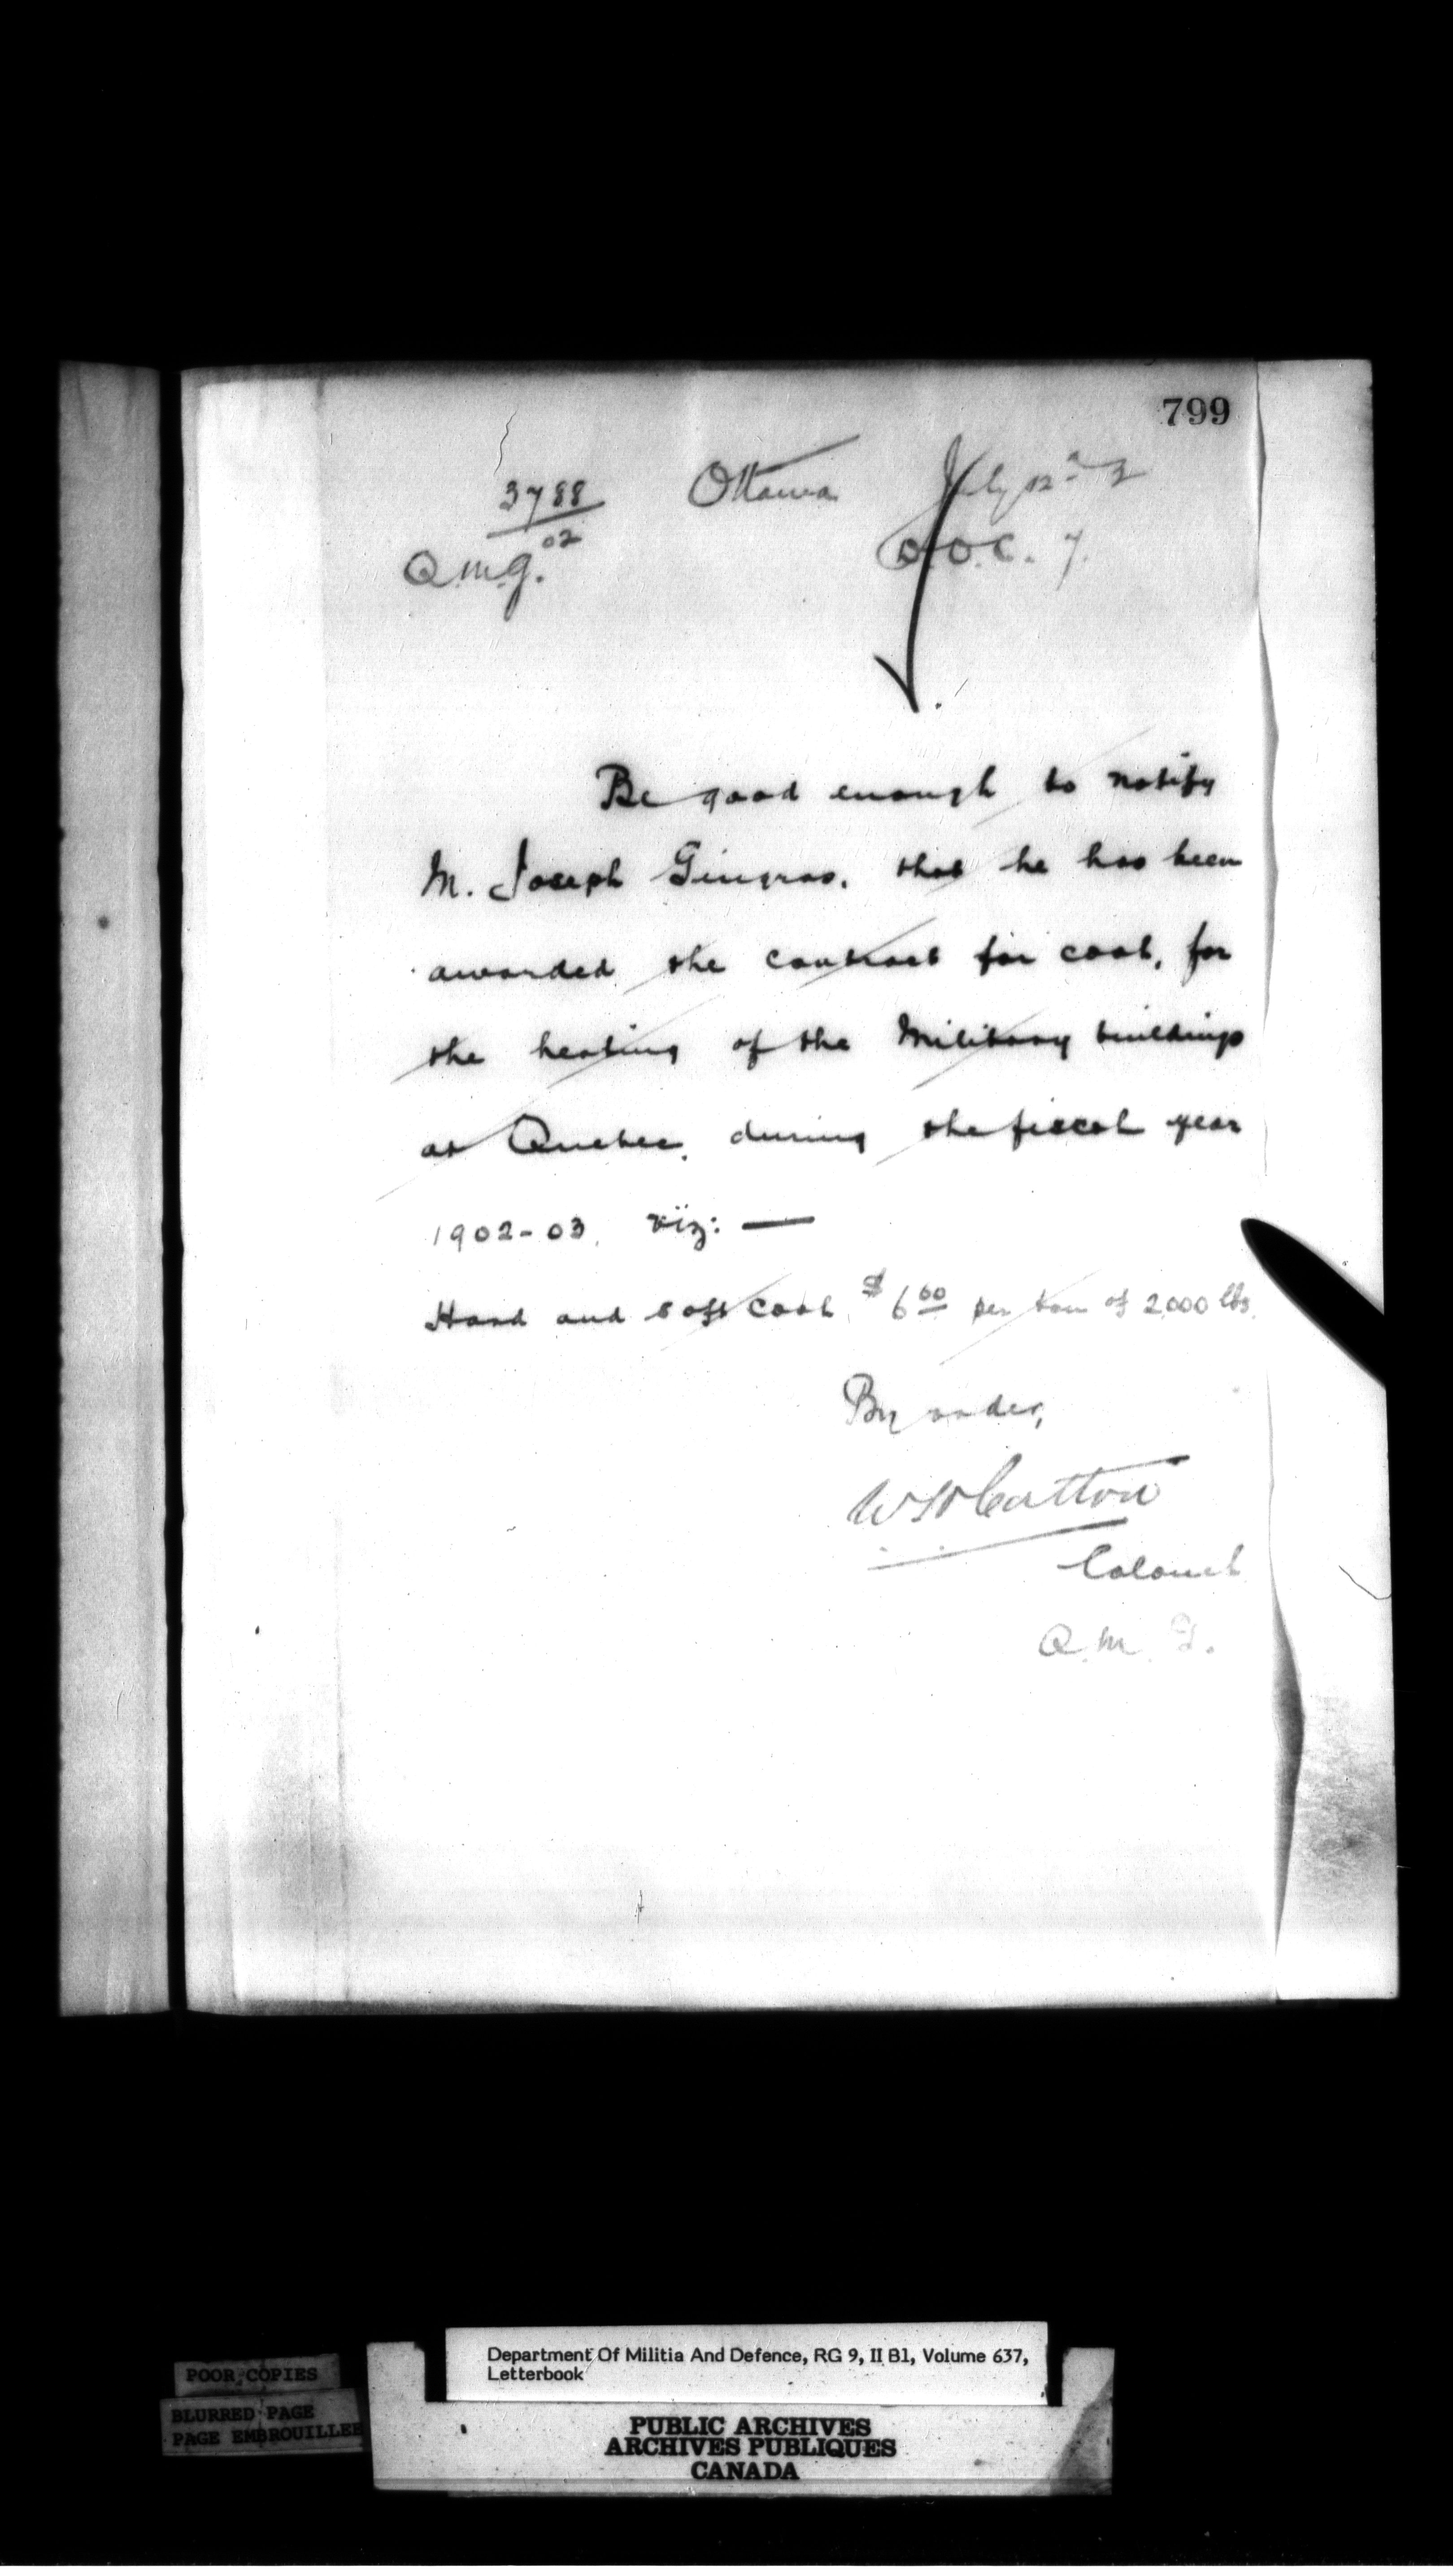 799
3788
02
Q.M.G.
Ottawa July 12
D.O.C. 7.
Be good enough to notify
M. Joseph Gingras, that he has been
awarded the contract for coal, for
the heating of the Military buildings
at Quebec, during the fiscal year
1902-03, viz: —
Hard and soft coal, $6 00 per ton of 2000 lbs.
By order,
Colonel
Q.M.G.
POOR COPIES
BLURRED PAGE
PAGE EMBROUILLEE
Department Of Militia And Defence, RG 9, II B1, Volume 637,
Letterbook
PUBLIC ARCHIVES
ARCHIVES PUBLIQUES
CANADA